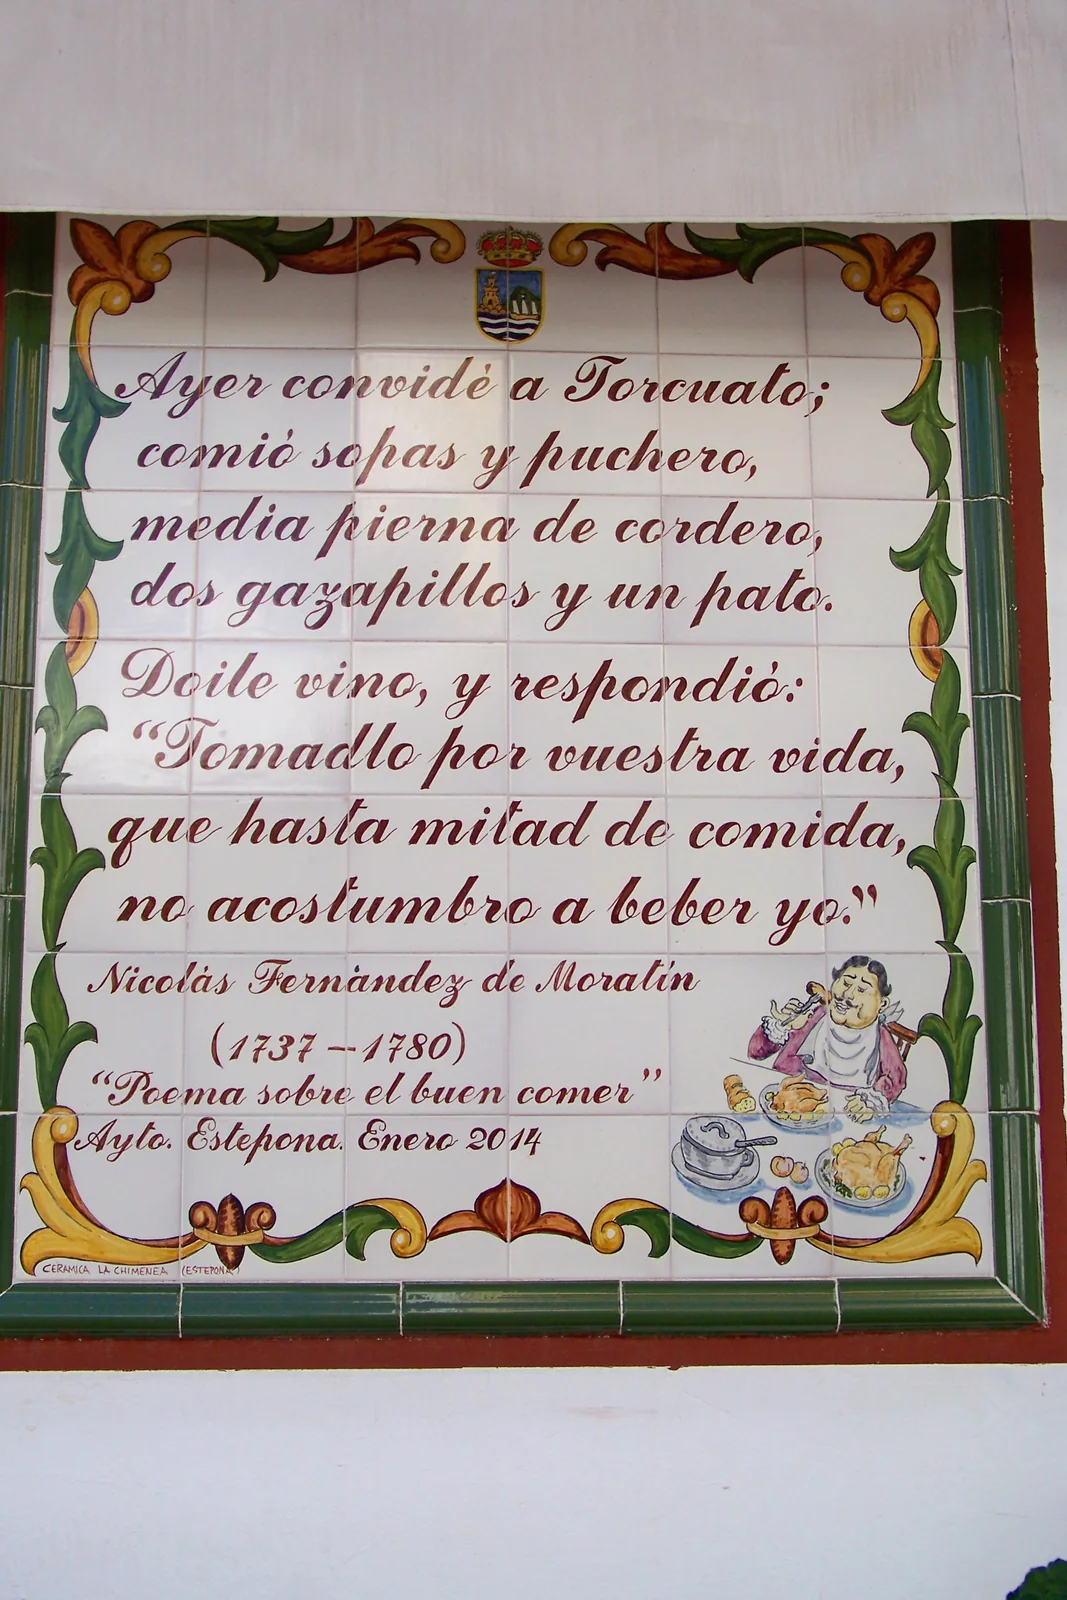 Ayer convidé a Torcuato;
comió sopas y puchero,
media pierna de cordero,
dos gazapillos y un pato.
Doile vino, y respondió:
“Tomadlo por vuestra vida,
que hasta mitad de comida,
no acostumbro a beber yo.”
Nicolás Fernández de Moratín
(1737 – 1780)
“Poema sobre el buen comer”
Ayto. Estepona. Enero 2014
CERAMICA LA CHIMENEA (ESTEPONA)